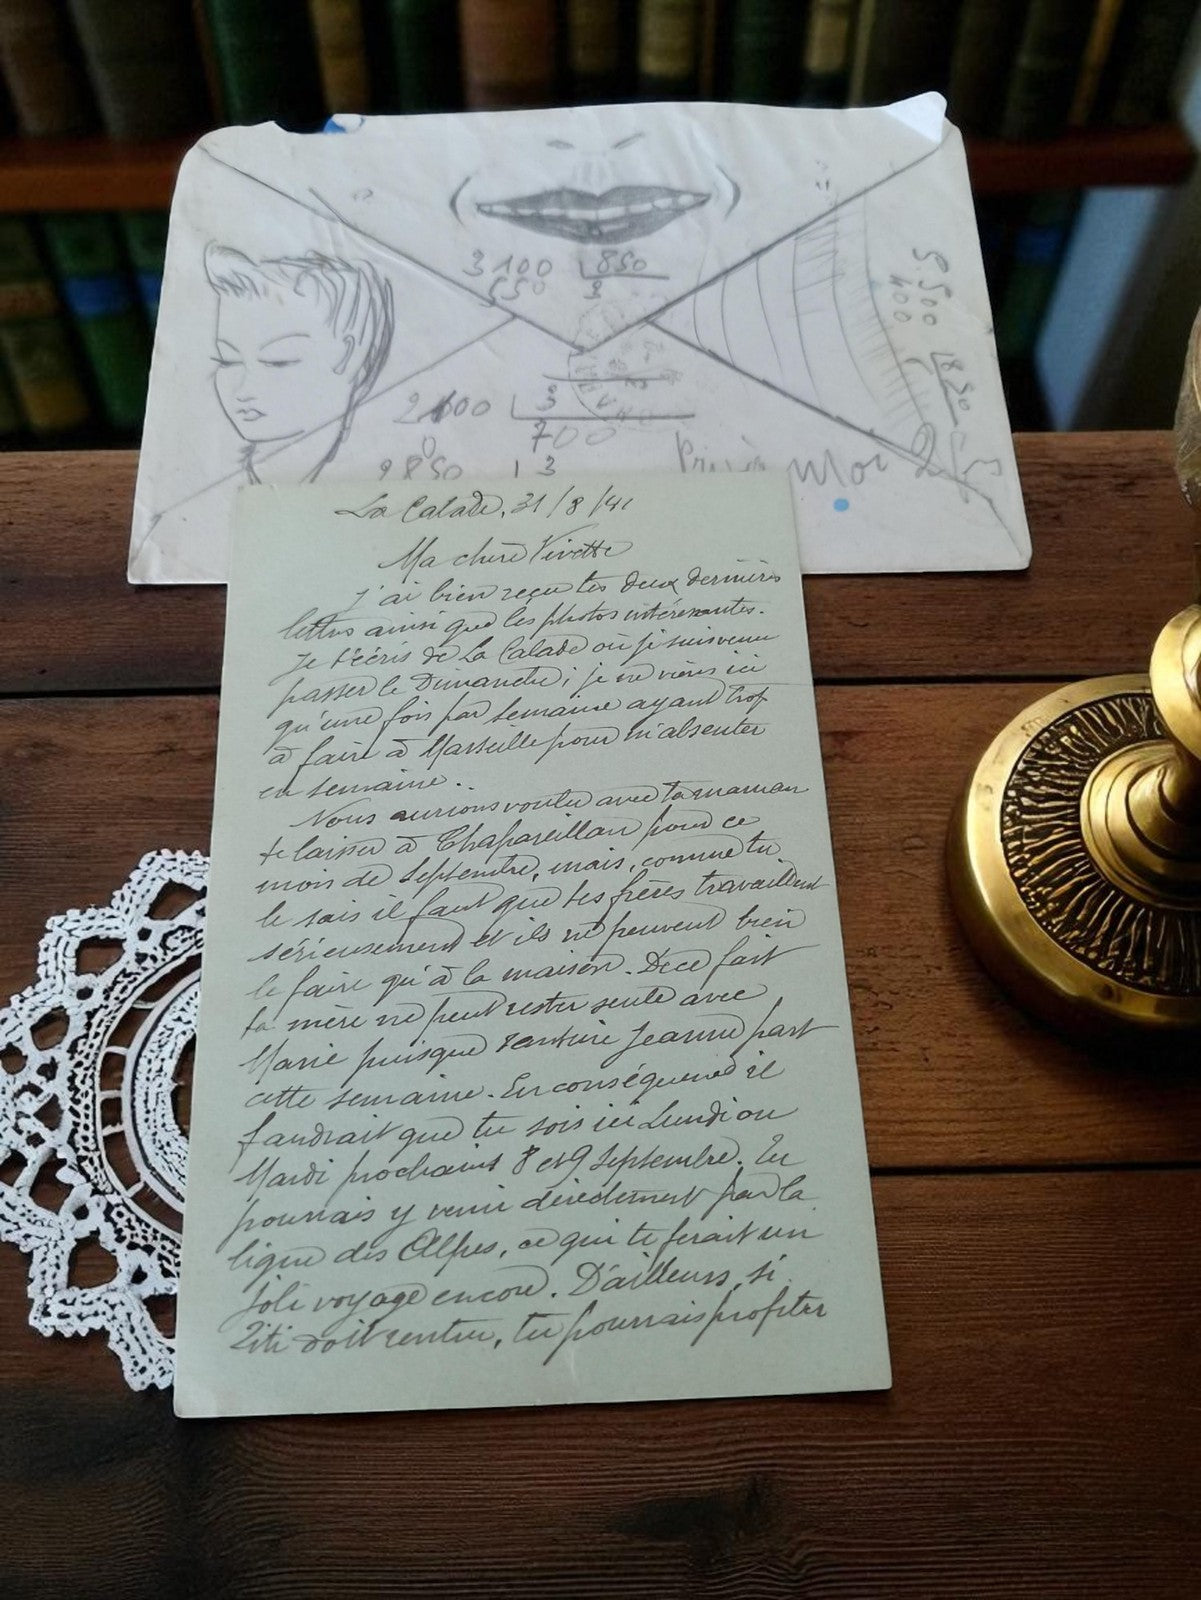 3100 850
550 3
2100 3
0 700
9850 13
5.500 1850
400
Moi
La Calade, 31/8/41
Ma chère Vivette
J'ai bien reçu tes deux dernières
lettres ainsi que les photos intéressantes.
Je t'écris de La Calade où je suis venu
passer le Dimanche; je ne viens ici
qu'une fois par semaine ayant trop
à faire à Marseille pour m'absenter
en semaine.
Nous aurions voulu avec ta maman
te laisser à Chapareillan pour ce
mois de Septembre, mais, comme tu
le sais il faut que tes frères travaillent
sérieusement et ils ne peuvent bien
le faire qu'à la maison. De ce fait
ta mère ne peut rester seule avec
Marie puisque Jeanne part
cette semaine. En conséquence il
faudrait que tu sois ici Lundi ou
Mardi prochains 8 et 9 Septembre. Tu
pourrais y venir directement par la
ligne des Alpes, ce qui te ferait un
joli voyage encore. D'ailleurs, si
Titi doit rentrer, tu pourrais profiter